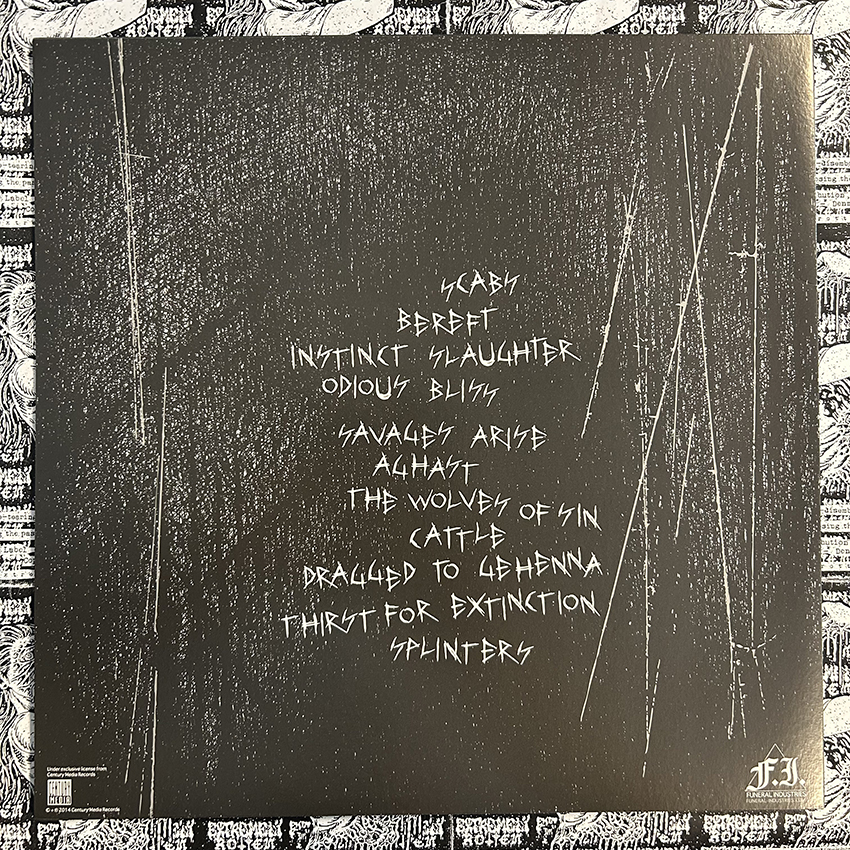 SCABS
BEREFT
INSTINCT SLAUGHTER
ODIOUS BLISS
SAVAGES ARISE
AGHAST
THE WOLVES OF SIN
CATTLE
DRAGGED TO GEHENNA
THIRST FOR EXTINCTION
SPLINTERS
Under exclusive license from
Century Media Records
CENTURY
MEDIA
© + ℗ 2014 Century Media Records
F.I.
FUNERAL INDUSTRIES